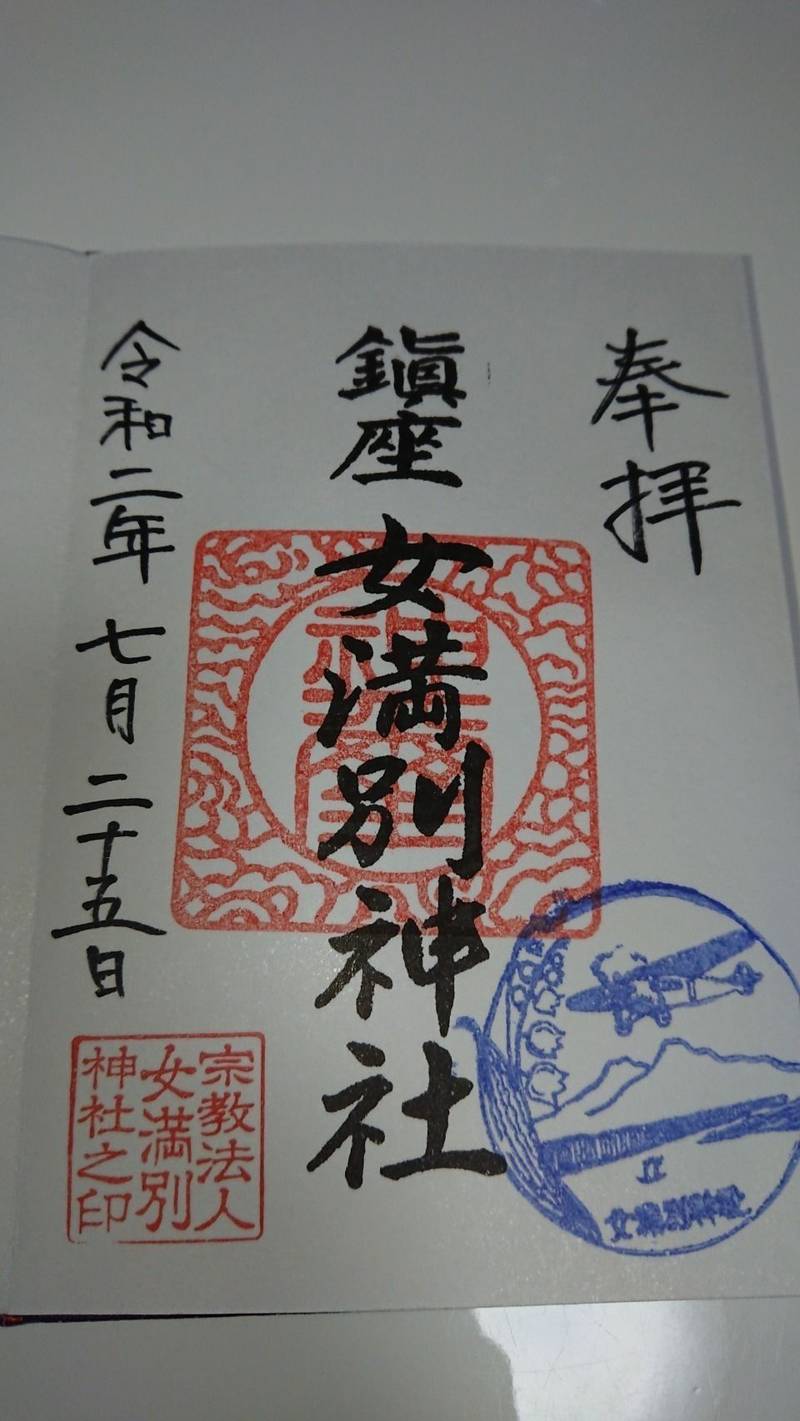 奉拝
鎭座 女満別神社
令和二年 七月 二十五日
宗教法人
女満別
神社之印
女満別神社